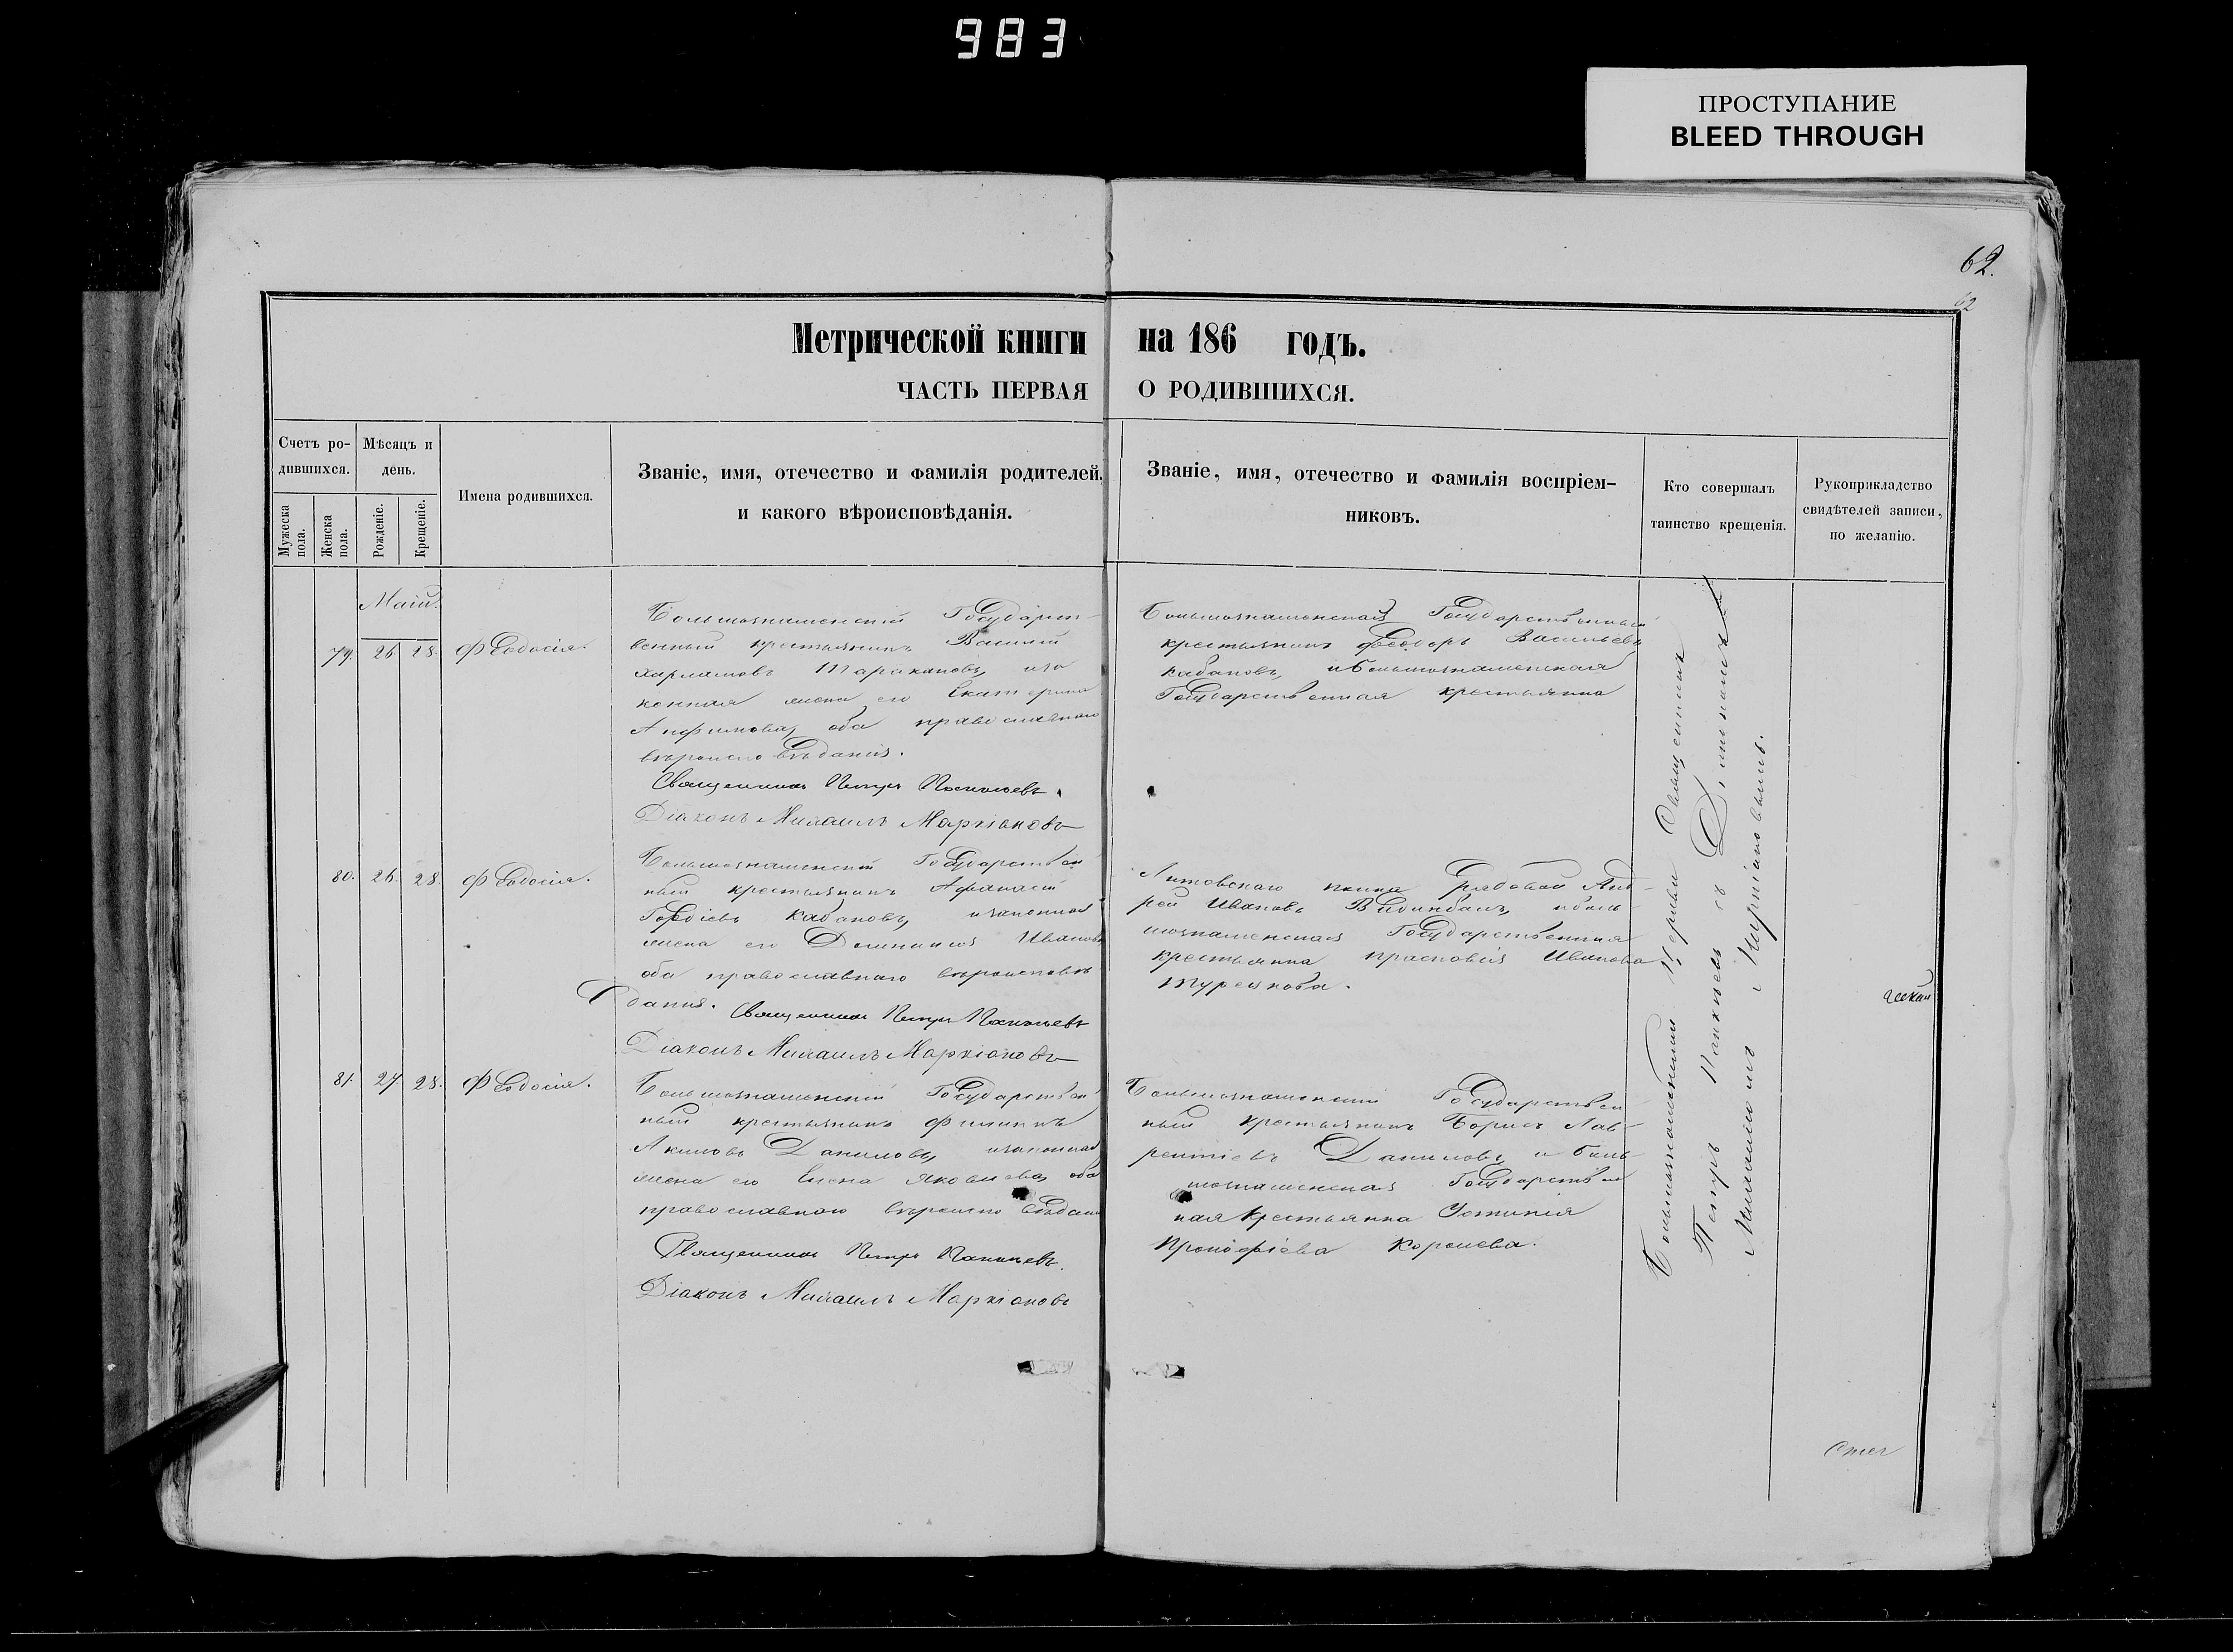 983
ПРОСТУПАНИЕ
BLEED THROUGH
62.
62
Метрической книги на 186 годъ.
ЧАСТЬ ПЕРВАЯ О РОДИВШИХСЯ.
Счетъ родившихся.
Мужеска пола.
Женска пола.
Мѣсяцъ и день.
Рожденіе.
Крещеніе.
Имена родившихся.
Званіе, имя, отечество и фамилія родителей,
и какого вѣроисповѣданія.
Званіе, имя, отечество и фамилія воспріем-
никовъ.
Кто совершалъ
таинство крещенія.
Рукоприкладство
свидѣтелей записи,
по желанію.
Маій.
79. 26 28. Феодосія.
Большознаменскій Государст-
венный крестьянинъ Василій
Харламовъ Таракановъ, иза
конная жена его Екатерина
Анфимова, оба православнаго
вѣроисповѣданія.
Священникъ Петръ
Діаконъ Михаилъ Маркіановъ
Большознаменскій Государственный
крестьянинъ Феодоръ Васильевъ
Кабановъ, и Большознаменская
Государственная крестьянка
80. 26. 28. Феодосія.
Большознаменскій Государствен
ный крестьянинъ Афанасій
Гордіевъ Кабановъ, изаконная
жена его Домникія Иванова
оба православнаго вѣроисповѣ
данія. Священникъ Петръ
Діаконъ Михаилъ Маркіановъ
Литовскаго полка Рядовой Анд-
рей Ивановъ и боль-
шознаменская Государственная
крестьянка Прасковія Иванова
81. 27 28. Феодосія.
Большознаменскій Государствен
ный крестьянинъ Филиппъ
Акимовъ Даниловъ, изаконная
жена его Елена Яковлева, оба
православнаго вѣроисповѣдан
Священникъ Петръ
Діаконъ Михаилъ Маркіановъ
Большознаменскій Государствен
ный крестьянинъ Борисъ Лав-
рентіевъ Даниловъ, и Боль
шознаменская Государствен
ная крестьянка Устинія
Прокофіева Королева.
Большознаменской Церкви Священникъ
Петръ съ Діакономъ
Михаиломъ Маркіановымъ.